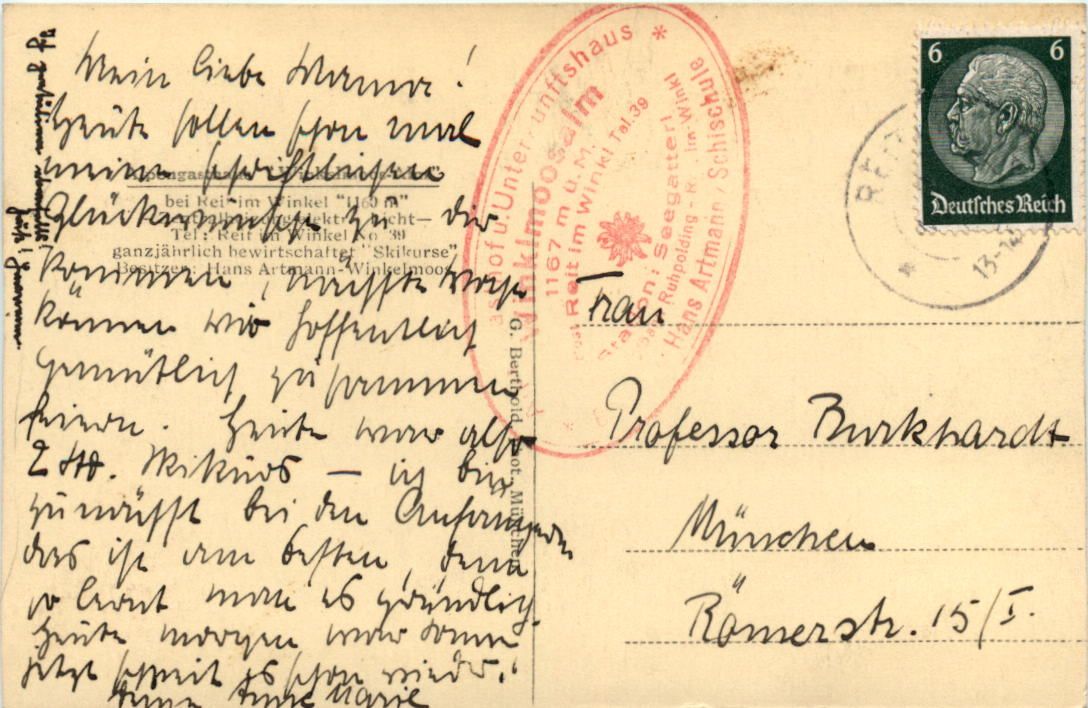 Mein liebe Mama!
Heute sollen schon mal
meine schriftlichen
Glückwünsche zu dir
kommen, nächste Woche
können wir hoffentlich
gemütlich zusammen
feiern. Heute war also
2 Std. Skikurs — ich bin
zunächst bei den Anfängern
das ist am besten, denn
so lernt man es gründlich.
Heute morgen war Sonne
jetzt schneit es schon wieder.
Anne Marie
bei Reit im Winkel "1160 m"
Tel: Reit im Winkel No 39
ganzjährlich bewirtschaftet "Skikurse"
Besitzer: Hans Artmann-Winkelmoos
G. Berthold, phot. München
Unterkunftshaus *
Winklmoosalm
1167 m ü. M.
Post Reit im Winkl Tel. 39
Station: Seegatterl
Ruhpolding - R. im Winkl
Hans Artmann / Schischule
6 6
Deutsches Reich
REIT
13-14
Frau
Professor Burkhardt
München
Römerstr. 15/I.